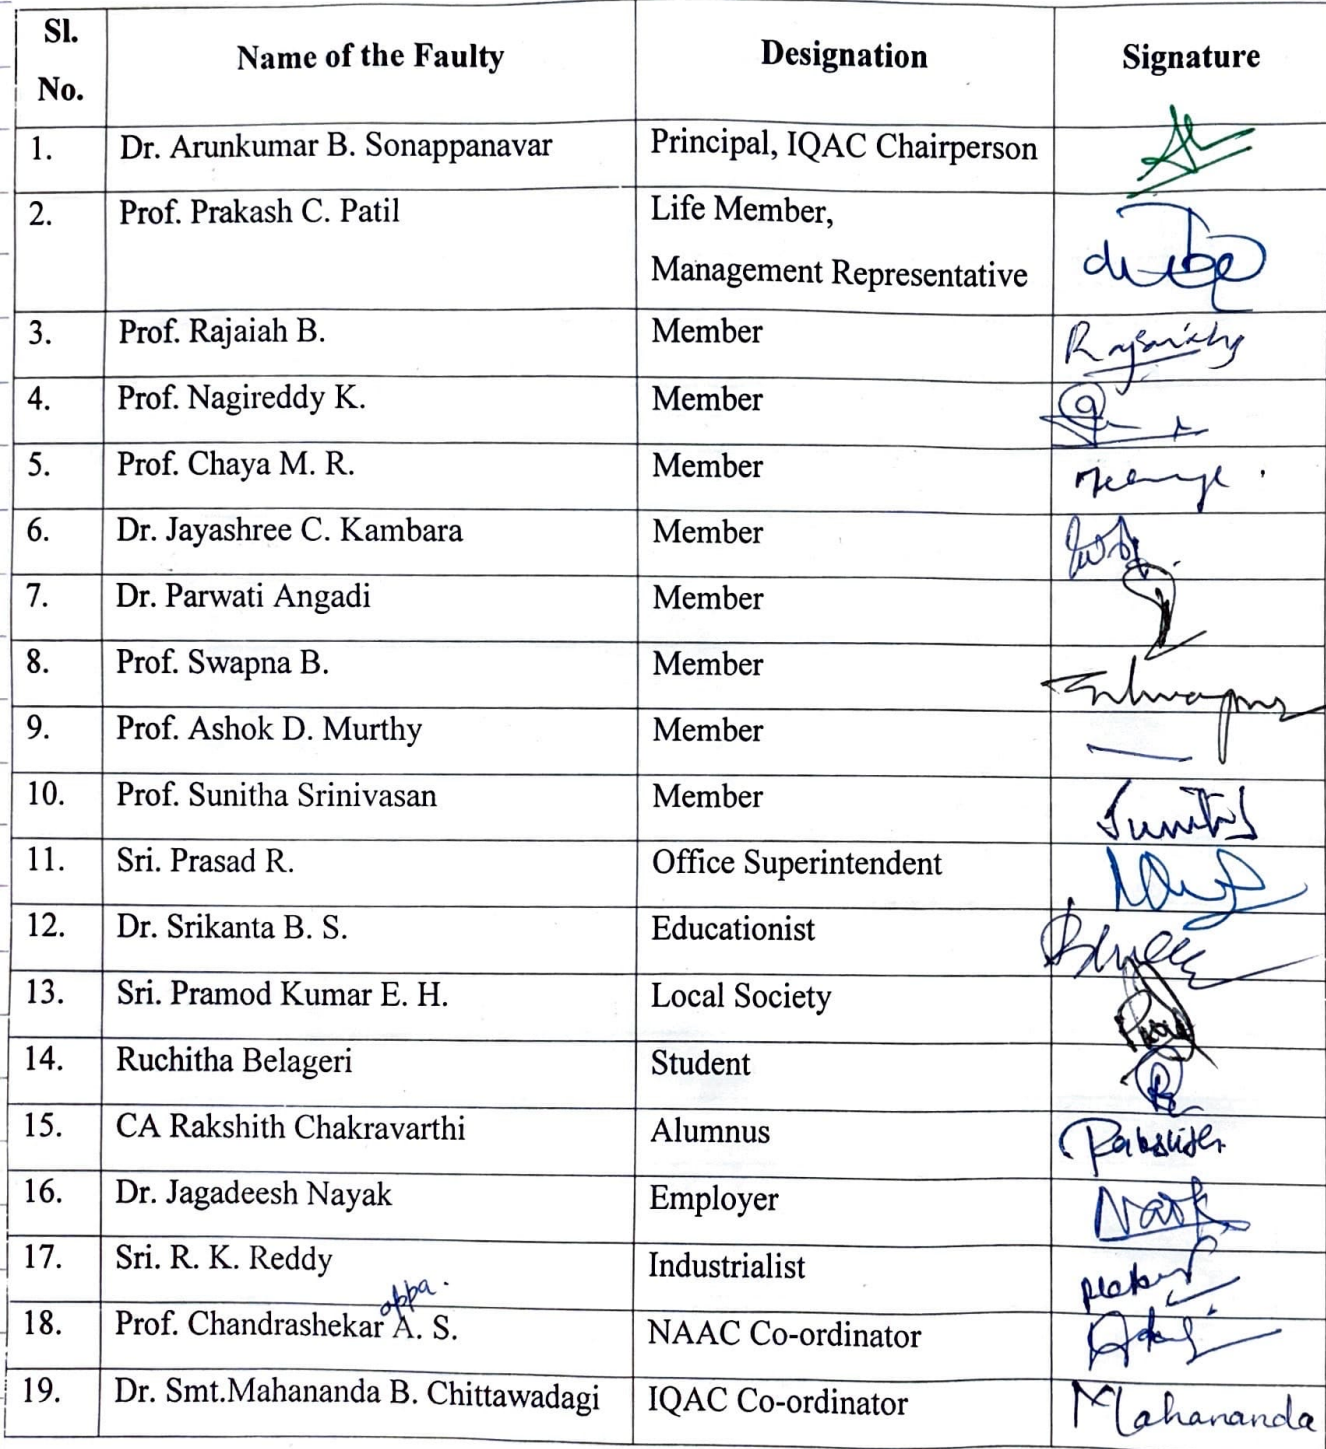 Sl. No. Name of the Faulty Designation Signature
1. Dr. Arunkumar B. Sonappanavar Principal, IQAC Chairperson
2. Prof. Prakash C. Patil Life Member,
Management Representative
3. Prof. Rajaiah B. Member
4. Prof. Nagireddy K. Member
5. Prof. Chaya M. R. Member
6. Dr. Jayashree C. Kambara Member
7. Dr. Parwati Angadi Member
8. Prof. Swapna B. Member
9. Prof. Ashok D. Murthy Member
10. Prof. Sunitha Srinivasan Member
11. Sri. Prasad R. Office Superintendent
12. Dr. Srikanta B. S. Educationist
13. Sri. Pramod Kumar E. H. Local Society
14. Ruchitha Belageri Student
15. CA Rakshith Chakravarthi Alumnus
16. Dr. Jagadeesh Nayak Employer
17. Sri. R. K. Reddy Industrialist
appa.
18. Prof. Chandrashekar A. S. NAAC Co-ordinator
19. Dr. Smt.Mahananda B. Chittawadagi IQAC Co-ordinator Mahananda